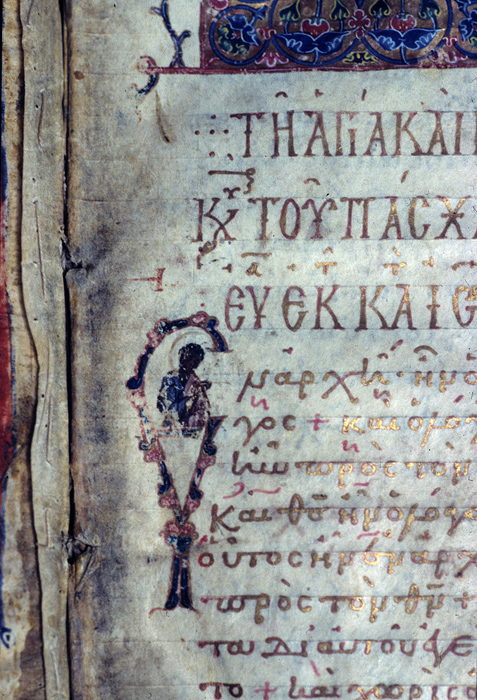 ΤΗ ΑΓΙΑ ΚΑΙ
Κυ ΤΟΥ ΠΑΣΧΑ
ΕΥ ΕΚ Κ
Ἐν ἀρχῆ· ἦν ὁ
γος + καὶ ὁ λο
ἦν πρὸς τὸν
Καὶ θς ἦν ὁ λόγο
οὗτος ἦν ἐν ἀρχ
πρὸς τὸν θν +
τα δι αὐτοῦ ἐγέ
το + καὶ χωρὶς